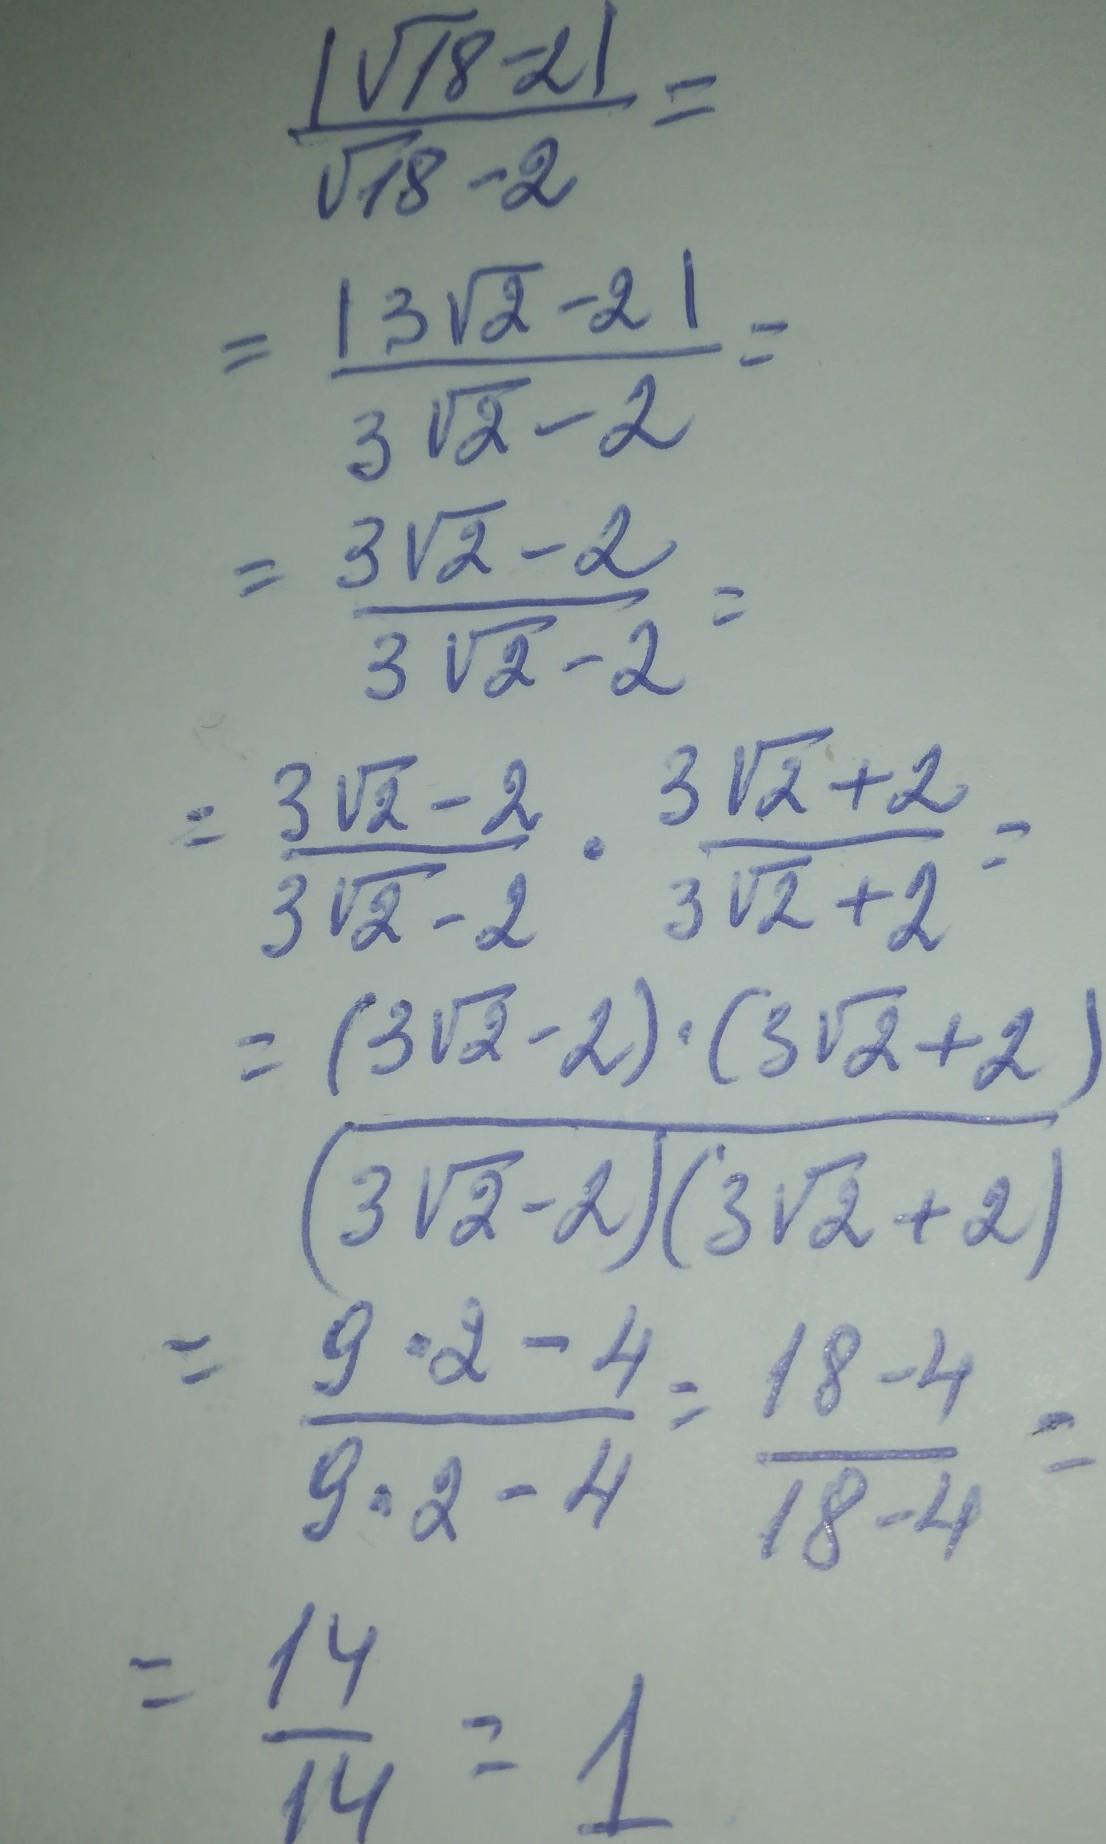 |√18-2|
/
√18-2 =
= |3√2-2|
/
3√2-2 =
= 3√2-2
/
3√2-2 =
= 3√2-2 / 3√2-2 · 3√2+2 / 3√2+2 =
= (3√2-2)·(3√2+2)
/
(3√2-2)(3√2+2)
= 9·2-4 / 9·2-4 = 18-4 / 18-4 =
= 14 / 14 = 1